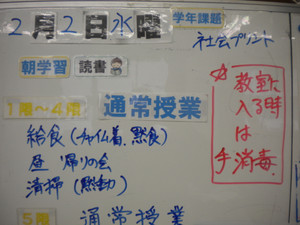 2月2日水曜
学年課題
社会プリント
朝学習 読書
1階～4階 通常授業
給食(チャイム着、黙食)
昼 帰りの会
清掃(黙動)
5階 通常授業
☆教室に
入る時
は
手消毒